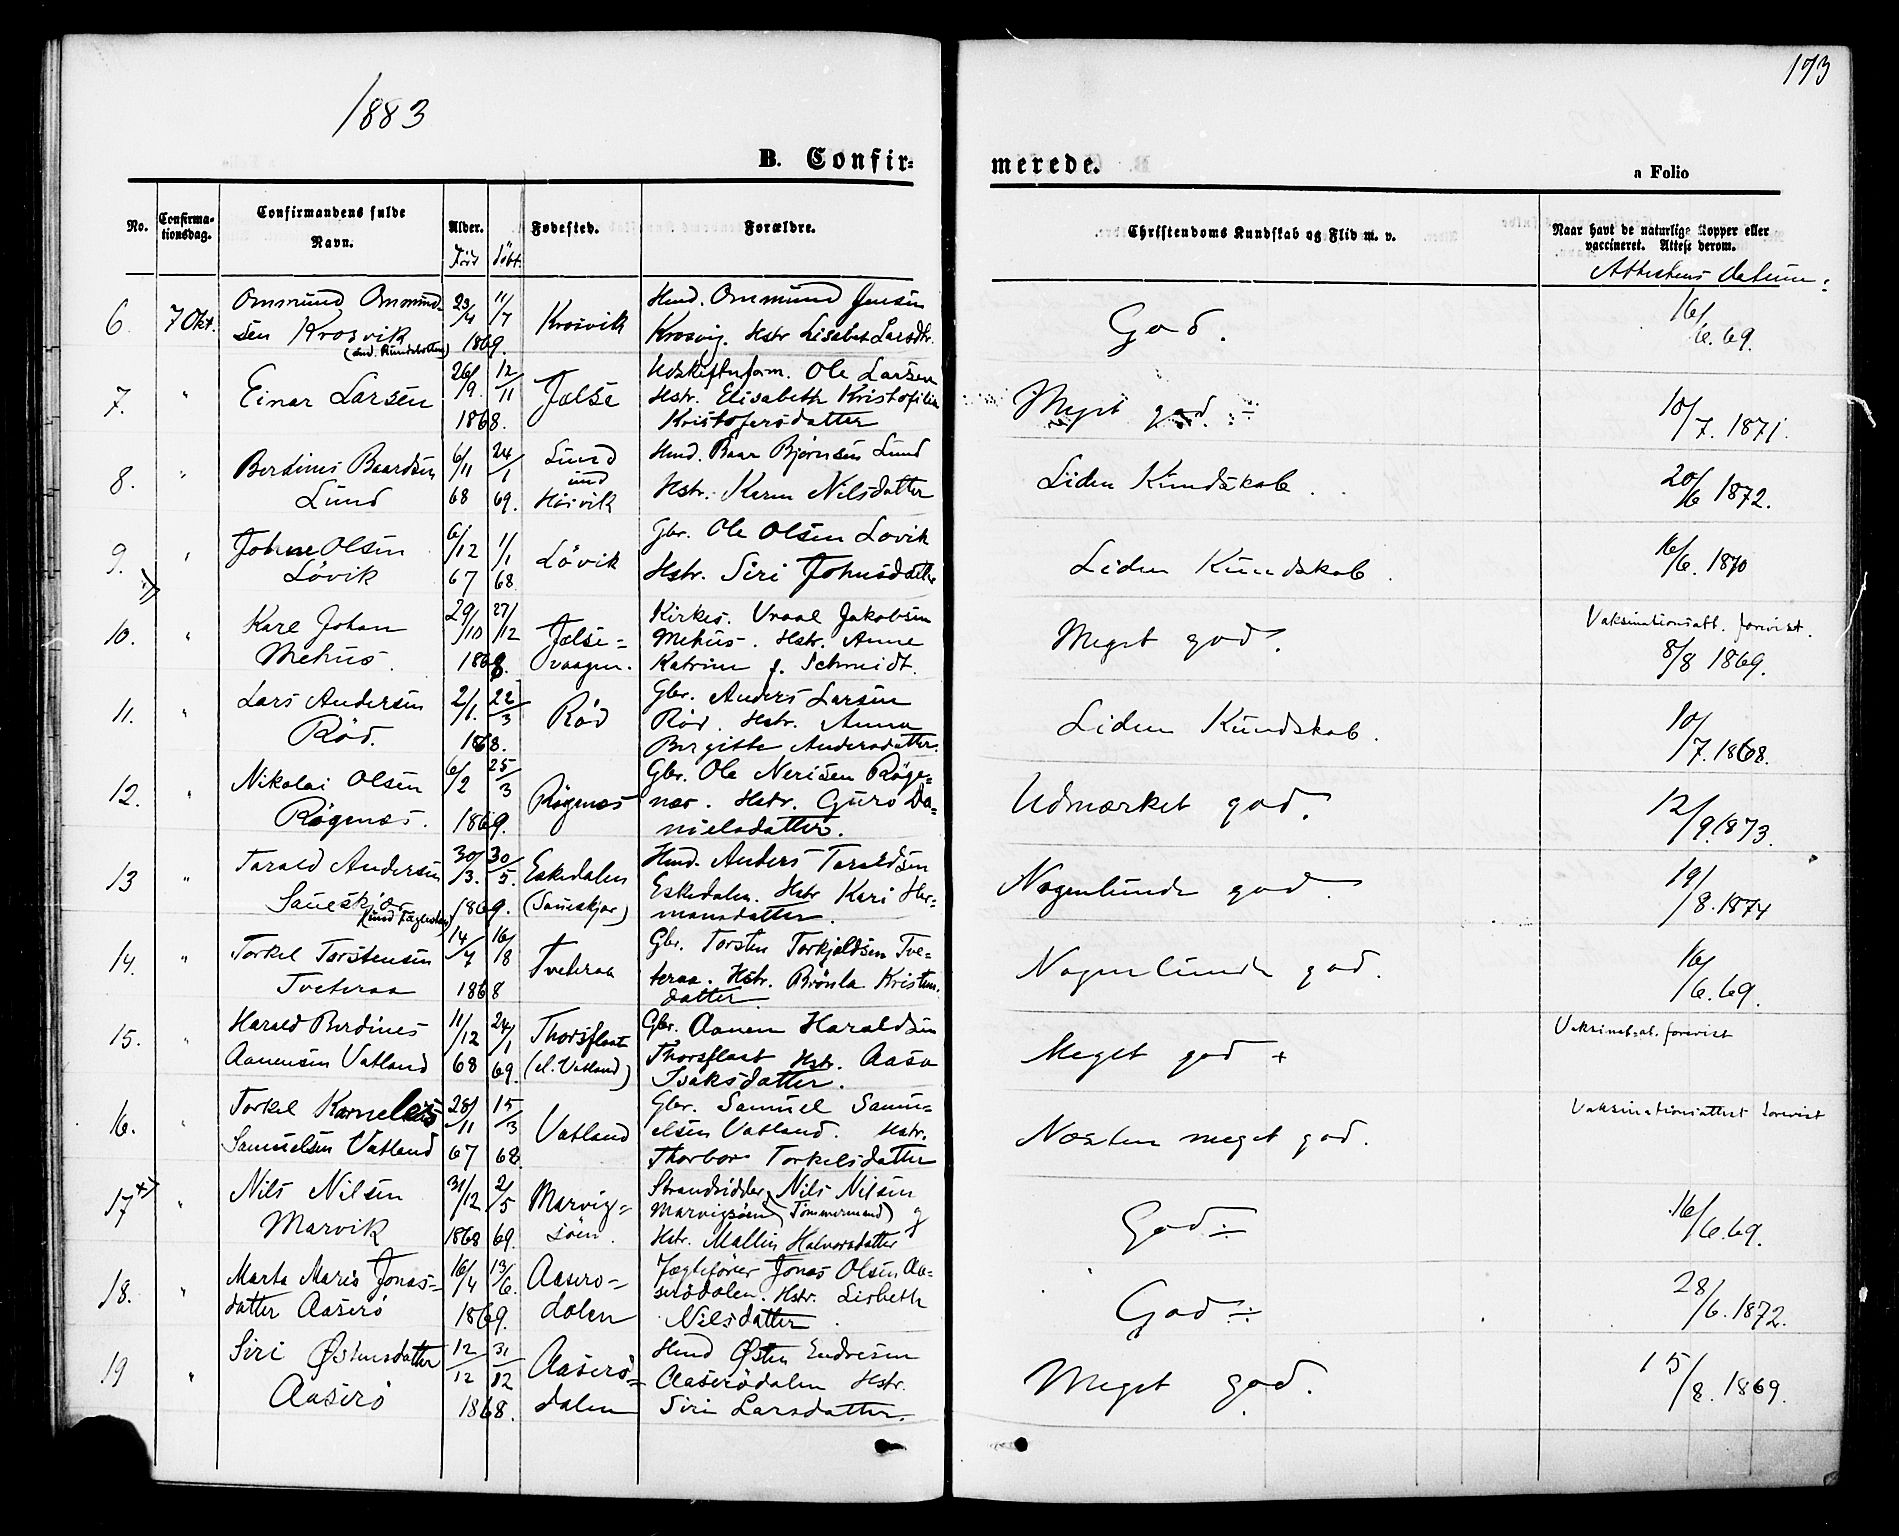 1883
173
B. Confir=
merede.
a Folio
No.
Confirma-
tionsdag.
Confirmandens fulde
Navn.
Alder.
Född döbt.
Fødested.
Forældre.
Christendoms Kundskab og Flid m. v.
Naar havt de naturlige Kopper eller
vaccineret. Attest derom.
Attestens datum:
6. 7 Okt. Ommund Ommund- 23/4 11/7 Krosvik Hmd. Ommund Jensen God. 16/
sen Krosvik 1869. Krosvig. Hstr Lisabet Larsdtr. 6. 69.
7. " Einar Larsen 26/9. 12/11 Jælse Ole Larsen Meget god. ÷ 10/7. 1871.
1868. Hstr. Elisabeth Kristofiline
Kristofersdatter
8. " Berdines Baardsen 6/11 24/1 Lund Hmd. Baar Bjørnsen Lund Liden Kundskab. 20/6 1872.
Lund 68 69. und Høsvik Hstr. Karen Nilsdatter
9. " Johne Olsen 6/12 1/1 Lövik Gbr. Ole Olsen Lovik Liden Kundskab. 16/6. 1870
Lövik 67 68. Hstr. Siri Johnsdatter
10. " Karl Johan 29/10 27/12 Jælse= Kirkes. Vraal Jakobsen Meget god. Vaksinationsatt. forevist.
Mehus. 1868. vaagen. Mehus. Hstr. Anne 8/8 1869.
Katrine f. Schmidt.
11. " Lars Andersen 2/1. 22/3 Röd Gbr. Anders Larsen Liden Kundskab. 10/
Röd. 1868. Röd. Hstr. Anna 7. 1868.
Birgitte Andersdatter.
12. " Nikolai Olsen 6/2 25/3 Rögenæs Gbr. Ole Nerisen Röge= Udmærket god. 12/9. 1873.
Rögenæs. 1869. næs. Hstr. Guro Da=
nielsdatter.
13 " Tarald Andersen 30/3. 30/5. Eskedalen Hmd. Anders Taraldsen Nogenlunde god. 19/
Saueskjær 1869. (Saueskjær) Eskedalen. Hstr Kari Her= 8. 1874
mansdatter.
14. " Torkel Torstensen 14/7 16/8 Tveteraa Gbr. Torsten Torkjeldsen Tve= Nogenlunde god. 16/
Tveteraa 1868 teraa. Hstr. Brönla Kristens. 6. 69.
datter
15. " Harald Berdines 11/12 24/1 Thorsflaat Gbr. Aanen Haraldsen Meget god + Vaksinat.at. forevist
Aanensen Vatland 68 69. (el. Vatland) Thorsflaat Hstr. Aasa
Isaksdatter.
16. " Torkel Kornelius 28/11 15/3 Vatland Gbr. Samuel Samu= Næsten meget god. Vaksinationsattest forevist
Samuelsen Vatland 67 68. elsen Vatland. Hstr.
Thorbor Torkelsdatter
17 +) " Nils Nilsen 31/12 2/5 Marvig= Strandsidder, Nils Nilsen God ÷ 16/
Marvik 1868 69. söen. Marvigsöen (Tömmermand) og 6. 69.
Hstr. Mallin Halvorsdatter
18. " Marta Maria Jonas= 16/4 13/6. Aaserö= Jægtefører Jonas Olsen Aa= God ÷ 28/
datter Aaserö 1869. dalen serödalen. Hstr. Lisbeth 6. 1872.
Nilsdatter
19 " Siri Østensdatter 12/12 31/12 Aaserö= Hmd Østen Endresen Meget god. 15/
Aaserö 1868. dalen Aaserödalen Hstr. 8. 1869.
Siri Larsdatter.